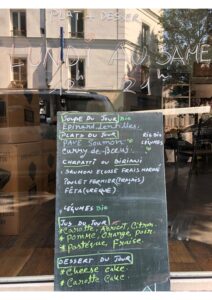 PLAT + DESSERT
LUNDI AU SAMEDI
12h 21h
SOUPE DU JOUR BIO
Epinard, Lentilles.
PLATS DU JOUR BIO BIO
PAVÉ Saumon LÉGUMES
Curry de
CHAPATTI OU BIRIANI
SAUMON ECOSE FRAIS MARINÉ
POULET FERMIER
FÉTA (GREQUE)
LÉGUMES BIO
JUS DU JOUR
*Carotte, Abricot, Citron.
*POMME, Orange, Poire
*Pastèque, Fraise.
DESSERT DU JOUR
*Cheese cake
*Carotte Cake.